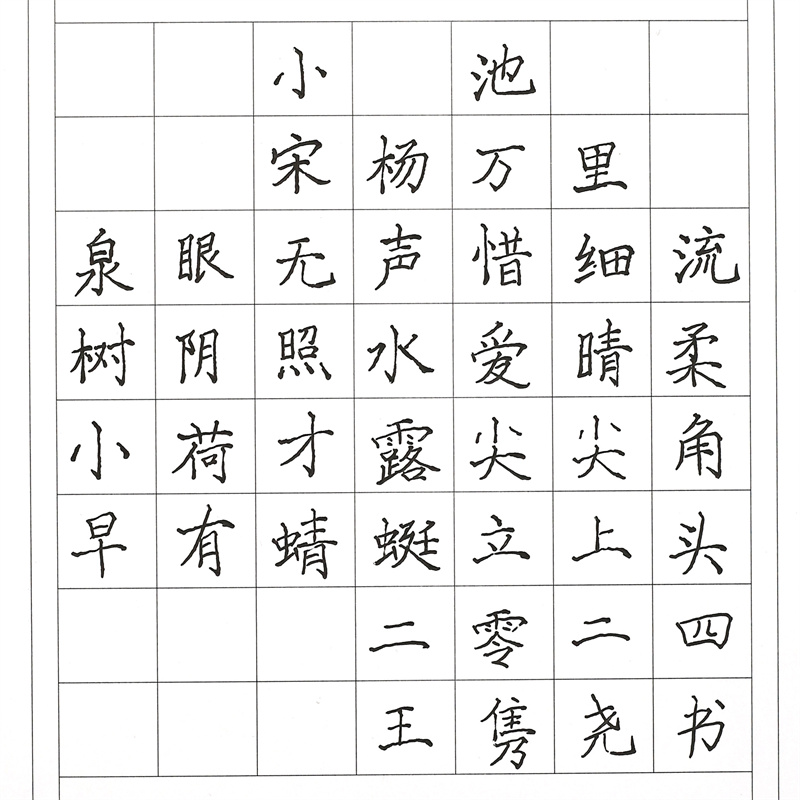 小池
宋杨万里
泉眼无声惜细流
树阴照水爱晴柔
小荷才露尖尖角
早有蜻蜓立上头
二零二四
王隽尧书